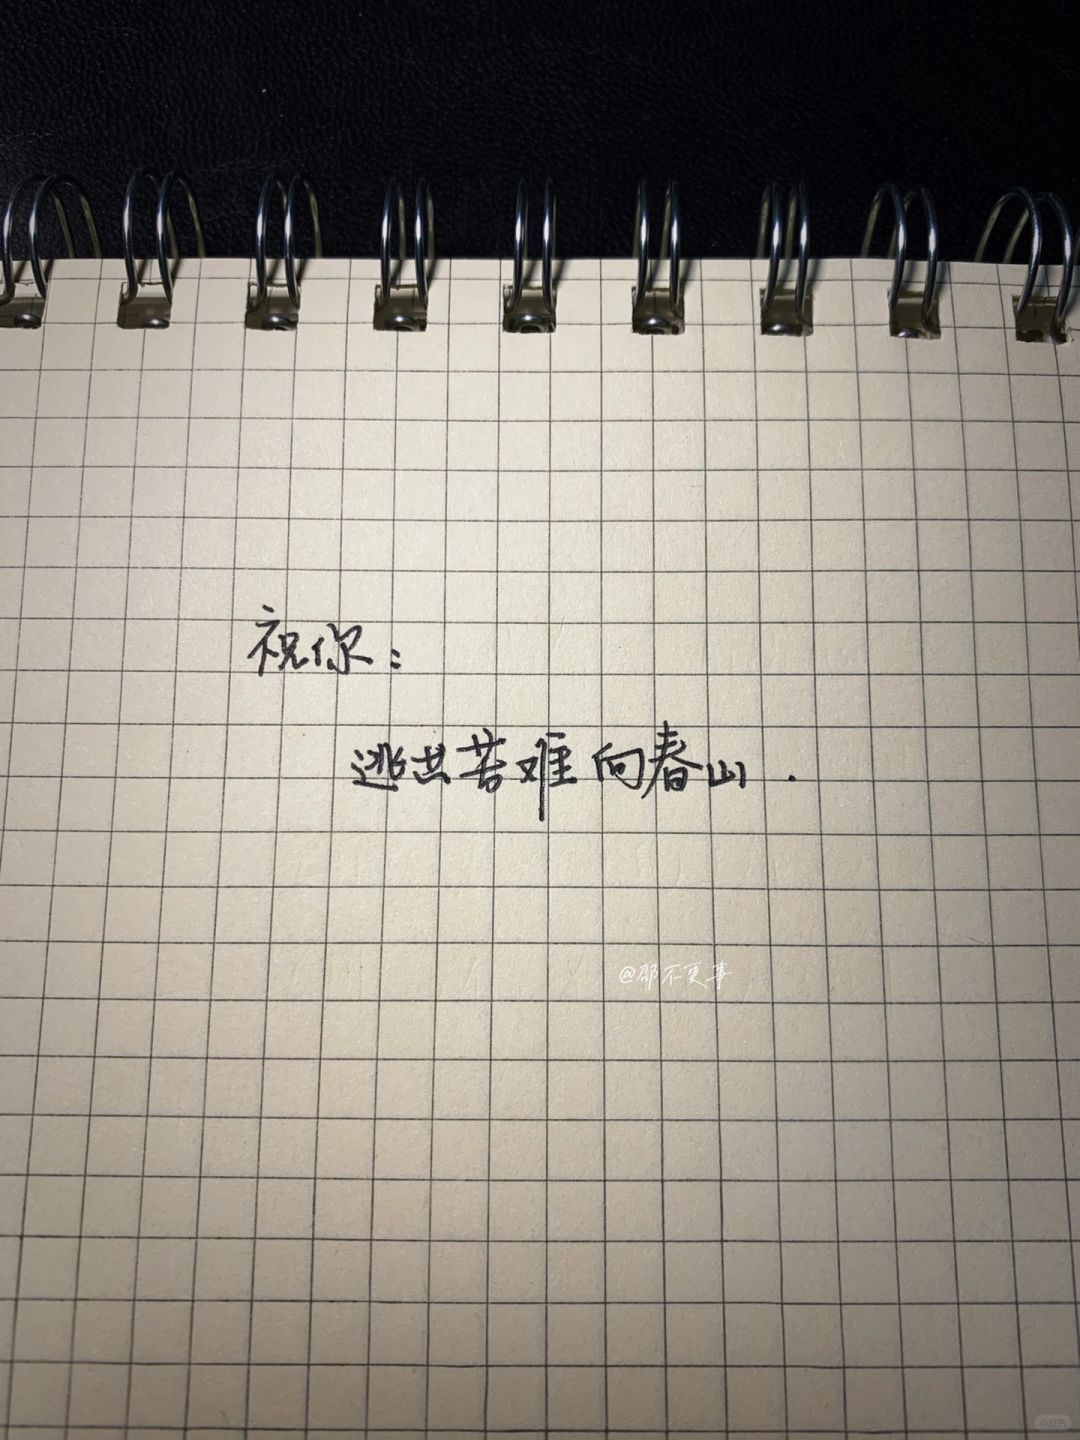 祝你：
逃出苦难向春山.
@邵不更事
小红书